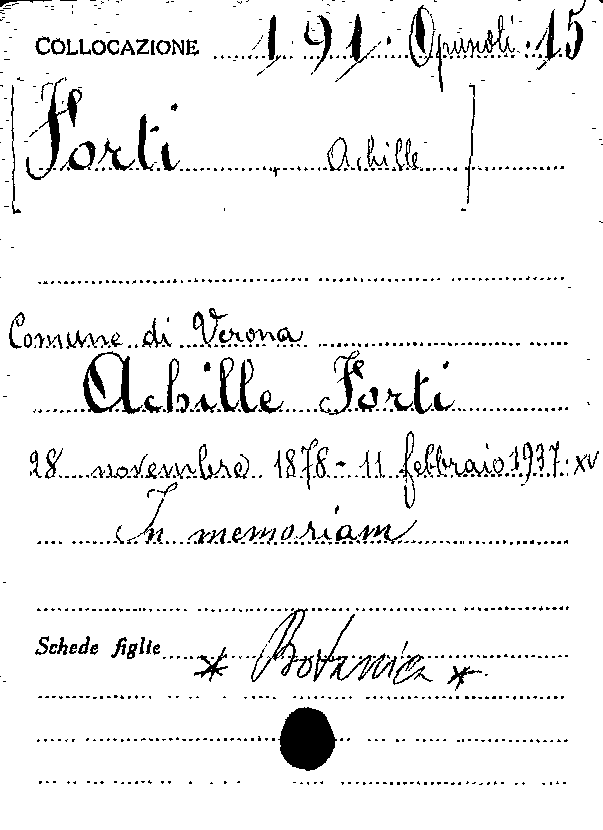 COLLOCAZIONE 191. Opuscoli. 15
[Forti, Achille]
Comune di Verona
Achille Forti
28 novembre 1878 - 11 febbraio 1937. XV
In memoriam
Schede figlie * Botanica *